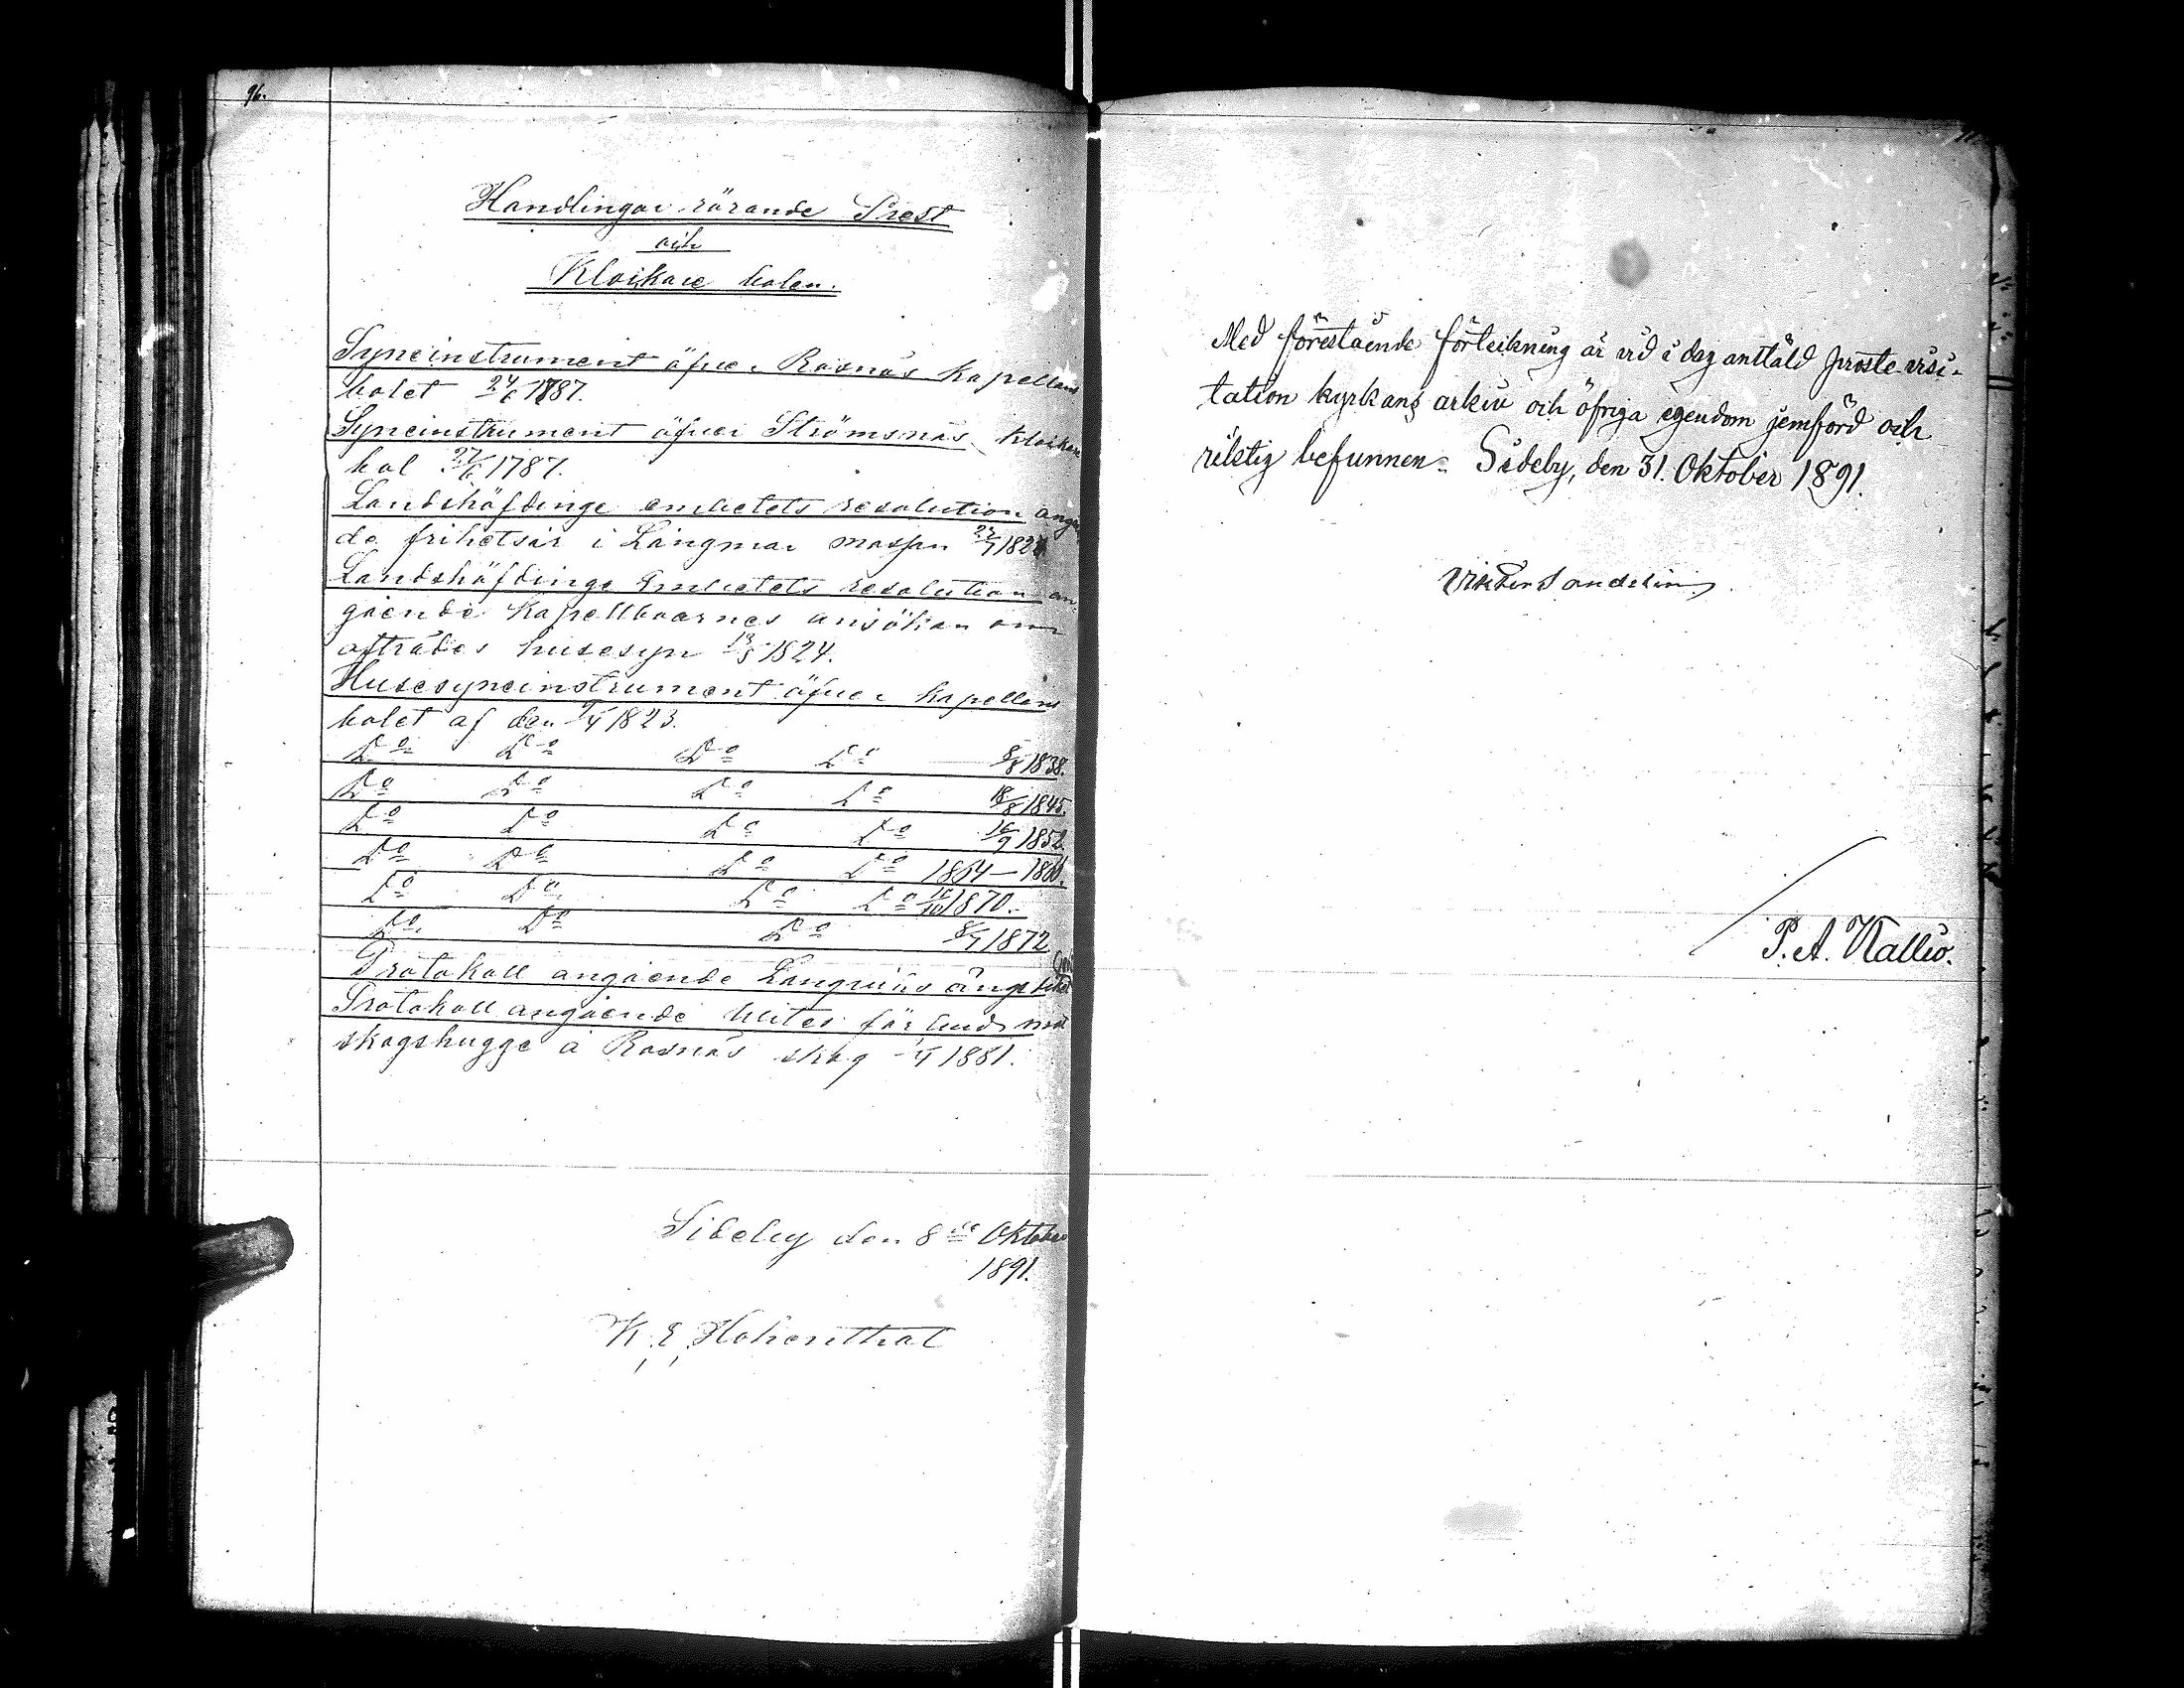 96.
Handlingar rörande Prest
och
Klockare bolen.
Syneinstrument öfver Rasnäs Kapellans
bolet 24/6 1787.
Syneinstrument öfver Strömsnäs Klockare
bol 27/6 1787.
Landshöfdinge embetets resolution angåen
de frihetsår i Långmar mossan
Landshöfdinge Embetets resolution an-
gående Kapellboarnes ansökan om
afträdes husesyn 13/5 1824.
Husesyneinstrument öfver Kapellans
bolet af den 1823.
Do Do Do Do 8/8 1838.
Do Do Do Do 18/8 1845.
Do Do Do Do 16/9 1852.
Do Do Do Do
Do Do Do Do 1870.
Do Do Do 8/7 1872
Protokoll angående
Protokoll angående för
skogshugge å Rasnäs skog 1881.
Sideby den 8de Oktober
1891.
K. E. Hohenthal
Med förestående förteikning är vid i dag anstäld proste-visi-
tation kyrkans arkiv och öfriga egendom jemförd och
riktig befunnen. Sideby, den 31. Oktober 1891.
Viktor Sandelin
P. A. Kallio.